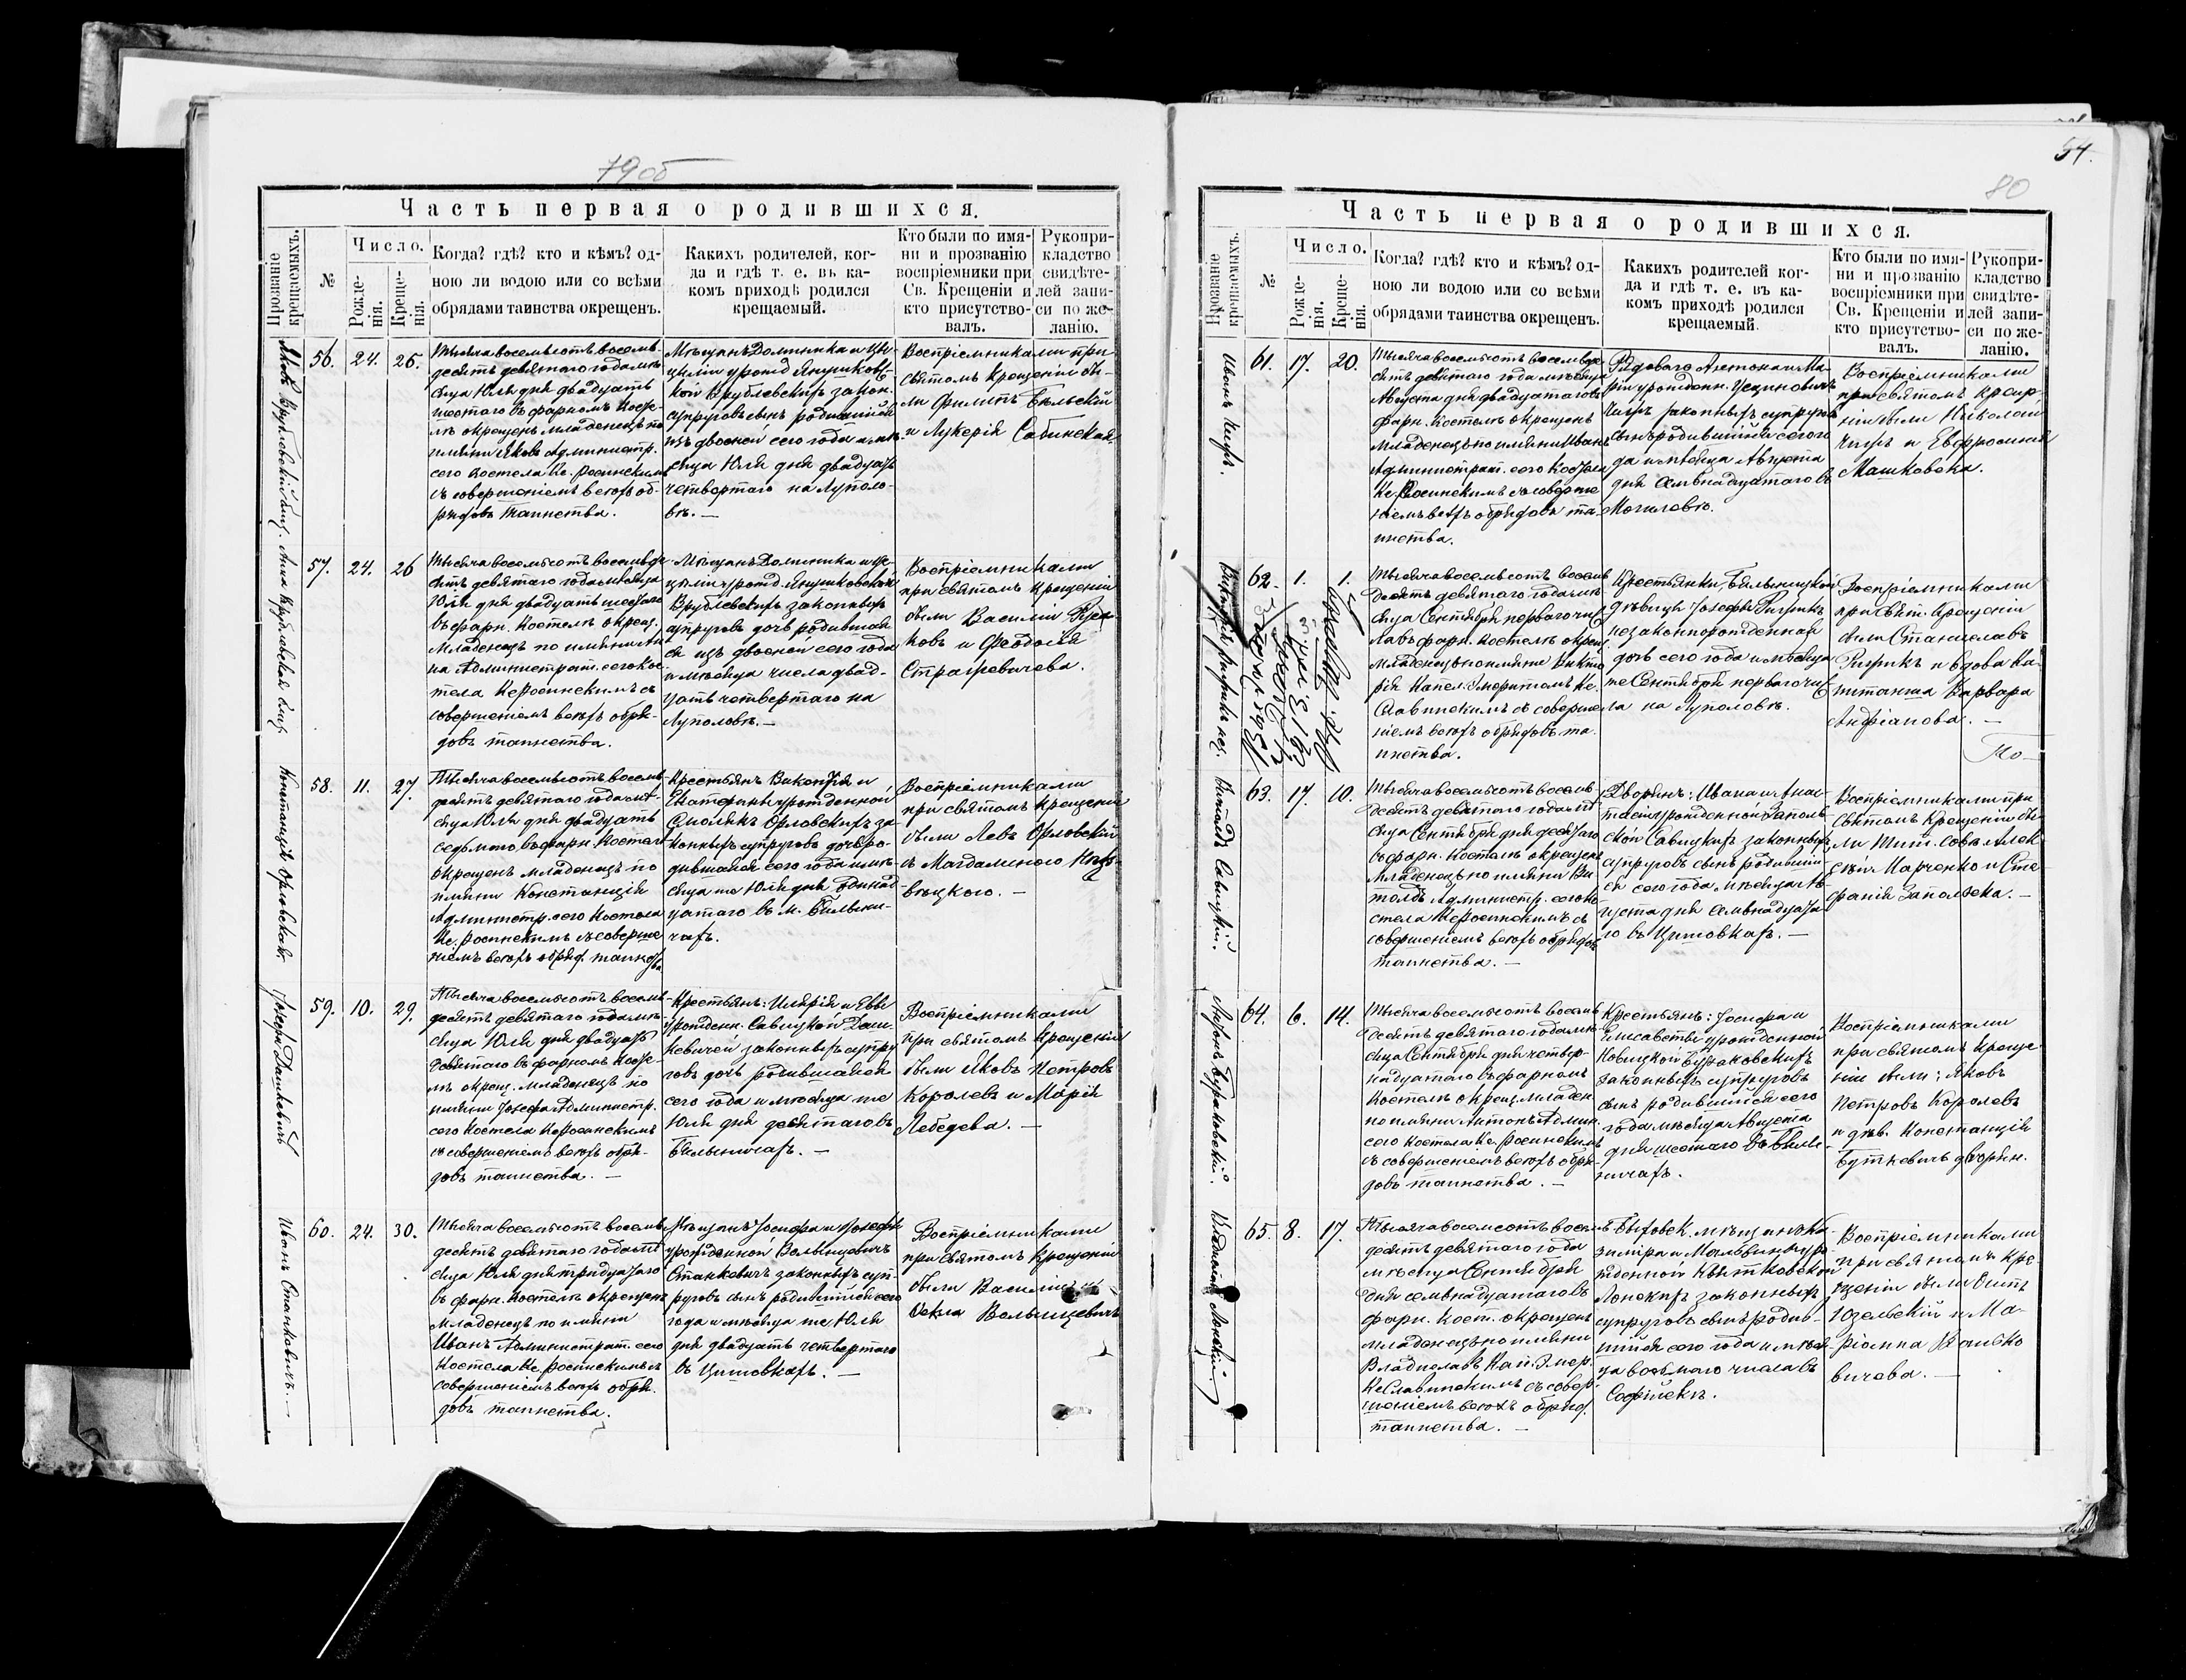 79 об
Часть первая о родившихся.
Прозваніе крещаемыхъ.
№
Число.
Рожде-
нія.
Креще-
нія.
Когда? гдѣ? кто и кѣмъ? од-
ною ли водою или со всѣми
обрядами таинства окрещенъ.
Какихъ родителей, ког-
да и гдѣ т. е. въ ка-
комъ приходѣ родился
крещаемый.
Кто были по имя-
ни и прозванію
воспріемники при
Св. Крещеніи и
кто присутство-
валъ.
Рукопри-
кладство
свидѣте-
лей запи-
си по же-
ланію.
Яковъ Врублевскій
56.
24.
26.
Тысяча восемьсотъ восемь-
десятъ девятаго года мѣ-
сяца Юля дня двадцать
шестаго въ фарномъ Косте-
лѣ окрещенъ младенецъ по
имени Яковъ Администр.
сего Костела Кс. Росинскимъ
съ совершеніемъ всѣхъ об-
рядовъ таинства.
Мѣщанъ Доминика и Це-
циліи урожд Янушковс-
кой Врублевскихъ закон.
супруговъ сынъ родившійся
изъ двойни сего года и мѣ-
сяца Юля дня двадцать
четвертаго на Луполо-
вѣ. —
Воспріемниками при
святомъ Крещеніи бы-
ли Филипъ Бѣльскій
и Лукерія Сабинская
Анна Врублевская
57.
24.
26
Тысяча восемьсотъ восемьде-
сятъ девятаго года мѣсяца
Юля дня двадцать шестаго
въ фарн. Костелѣ окрещ.
младенецъ по имени Ан-
на Администрат. сего Кос-
тела Кс Росинскимъ съ
совершеніемъ всѣхъ обря-
довъ таинства.
Мѣщанъ Доминика и Це-
циліи урожд. Янушковской
Врублевскихъ законныхъ
супруговъ дочь родившая-
ся изъ двойни сего года
и мѣсяца числа двад-
цать четвертаго на
Луполовѣ. —
Воспріемниками
при святомъ Крещеніи
были Василій
ковъ и Феодосія
Страхревичева.
Констанція Орловская
58.
11.
27.
Тысяча восемьсотъ восемь-
десятъ девятаго года мѣ-
сяца Юля дня двадцать
седьмого въ фарн. Костелѣ
окрещенъ младенецъ по
имени Констанція
Администр. сего Костела
Кс. Росинскимъ съ соверше
ніемъ всѣхъ обряд. таинства
Крестьянъ Викентія и
Екатерины урожденной
Смолякъ Орловскихъ за-
конныхъ супруговъ дочь ро-
дившаяся сего года и мѣ-
сяца же Юля дня одиннад-
цатаго въ м. Бялыни-
чахъ.
Воспріемниками
при святомъ Крещеніи
были Левъ Орловскій
съ Магдаленою
вецкою. —
Іозефа Дашкевичъ
59.
10.
29.
Тысяча восемьсотъ восемь-
десятъ девятаго года мѣ-
сяца Юля дня двадцать
девятаго въ фарномъ Косте-
лѣ окрещ. младенецъ по
имени Іозефа Администр.
сего Костела Кс Росинскимъ
съ совершеніемъ всѣхъ обря-
довъ таинства. —
Крестьянъ: Илярія и Еввы
урожден. Савицкой Даш-
кевичей законныхъ супру
говъ дочь родившаяся
сего года и мѣсяца же
Юля дня десятаго въ
Бялыничахъ. —
Воспріемниками
при святомъ Крещеніи
были Яковъ Петровъ
Королевъ и Марія
Лебедева. —
Иванъ Станкевичъ. —
60.
24.
30.
Тысяча восемьсотъ восемь
десятъ девятаго года мѣ
сяца Юля дня тридцатаго
въ фарн. Костелѣ окрещенъ
младенецъ по имени
Иванъ Администрат. сего
Костела Кс Росинскимъ съ
совершеніемъ всѣхъ обря-
довъ таинства.
Мѣщанъ Іосифа и Іозефы
урожденной Волынцевичъ
Станкевичъ законныхъ суп-
руговъ сынъ родившійся сего
года и мѣсяца же Юля
дня двадцать четвертаго
въ Цишовкахъ. —
Воспріемниками
при святомъ Крещеніи
были Василій
Ѳекла Волынцевичъ
54.
80
Часть первая о родившихся.
Прозваніе крещаемыхъ.
№
Число.
Рожде-
нія.
Креще-
нія.
Когда? гдѣ? кто и кѣмъ? од-
ною ли водою или со всѣми
обрядами таинства окрещенъ.
Какихъ родителей ког-
да и гдѣ т. е. въ ка-
комъ приходѣ родился
крещаемый.
Кто были по имя-
ни и прозванію
воспріемники при
Св. Крещеніи и
кто присутство-
валъ.
Рукопри-
кладство
свидѣте-
лей запи-
си по же-
ланію.
Иванъ
61.
17.
20.
Тысяча восемьсотъ восемьде-
сятъ девятаго года мѣсяца
Августа дня двадцатаго въ
фарн. Костелѣ окрещенъ
младенецъ по имени Иванъ
Администрат. сего Костела
Кс. Росинскимъ съ соверше
ніемъ всѣхъ обрядовъ та-
инства.
Рядового Антона и Ма-
ріи урожденн.
законныхъ супругов
сынъ родившійся сего го
да и мѣсяца Августа
дня семьнадцатаго въ
Могилевѣ.
Воспріемниками
при святомъ Креще-
ніи были Николай
и Евфросинія
Машковска.
Викторія Рификъ нез.
62.
1.
1.
Тысяча восемьсотъ восемь
десятъ девятаго года мѣ-
сяца Сентября перваго чис
ла въ фарн. Костелѣ окрещ.
младенецъ по имени Викто
рія Капел. Эмеритомъ Кс.
Славинскимъ съ соверше
ніемъ всѣхъ обрядовъ та-
инства.
Крестьянки, Бялыницкой
дѣвицы Іозефы Рификъ
незаконнорожденная
дочь сего года и мѣсяца
же Сентября перваго чис
ла на Луполовѣ.
Воспріемниками
при Свят. Крещеніи
были Станиславъ
Рификъ и вдова Ка-
питанша Варвара
Андріанова. —
То —
Витольдъ Савицкій.
63.
17.
10.
Тысяча восемьсотъ восемь
десятъ девятаго года мѣ
сяца Сентября дня десятаго
въ фарн. Костелѣ окрещенъ
младенецъ по имени Ви-
тольдъ Администр. сего Ко-
стела Кс Росинскимъ съ
совершеніемъ всѣхъ обрядов
таинства. —
Дворянъ: Ивана и Анас-
тасіи урожденной Заполь-
ской Савицкихъ законныхъ
супруговъ сынъ родивший-
ся сего года мѣсяца Ав-
густа дня семьнадцата-
го въ Цишовкахъ. —
Воспріемниками при
Святомъ Крещеніи бы-
ли Тит. Совѣ. Алек-
сѣй Марченко и Сте-
фанія Запольска. —
Антонъ Бурковскій.
64.
6.
14.
Тысяча восемьсотъ восемь
десятъ девятаго года мѣ-
сяца Сентября дня четыр-
надцатаго въ фарномъ
Костелѣ окрещ. младен.
по имени Антонъ Админ.
сего Костела Кс. Росинскимъ
съ совершеніемъ всѣхъ обря-
довъ таинства. —
Крестьянъ: Іосифа и
Елисаветы урожденной
Новицкой Бурковскихъ
законныхъ супруговъ
сынъ родившійся сего
года мѣсяца Августа
дня шестаго въ Бялы-
ничахъ.
Воспріемниками
при святомъ Креще-
ніи были: Яковъ
Петровъ Королевъ
и дѣв. Констанція
Буткевичъ дворян.
Владиславъ Лонскій
65.
8.
17.
Тысяча восемьсотъ восемь
десятъ девятаго года
мѣсяца Сентября
дня семьнадцатаго въ
фарн. Кост. окрещенъ
младенецъ по имени
Владиславъ Кап. Эмер.
Кс Славинскимъ съ совер-
шеніемъ всѣхъ обряд.
таинства. —
Быховск. мѣщанъ Ка-
зимира и Мальвины уро-
жденной Квятковской
Лонскихъ законныхъ
супруговъ сынъ родив-
шійся сего года и мѣся-
ца восьмого числа въ
Софійскѣ.
Воспріемниками
при святомъ Кре-
щеніи были Осипъ
и Ма-
ріанна Ивашко
вичева. —